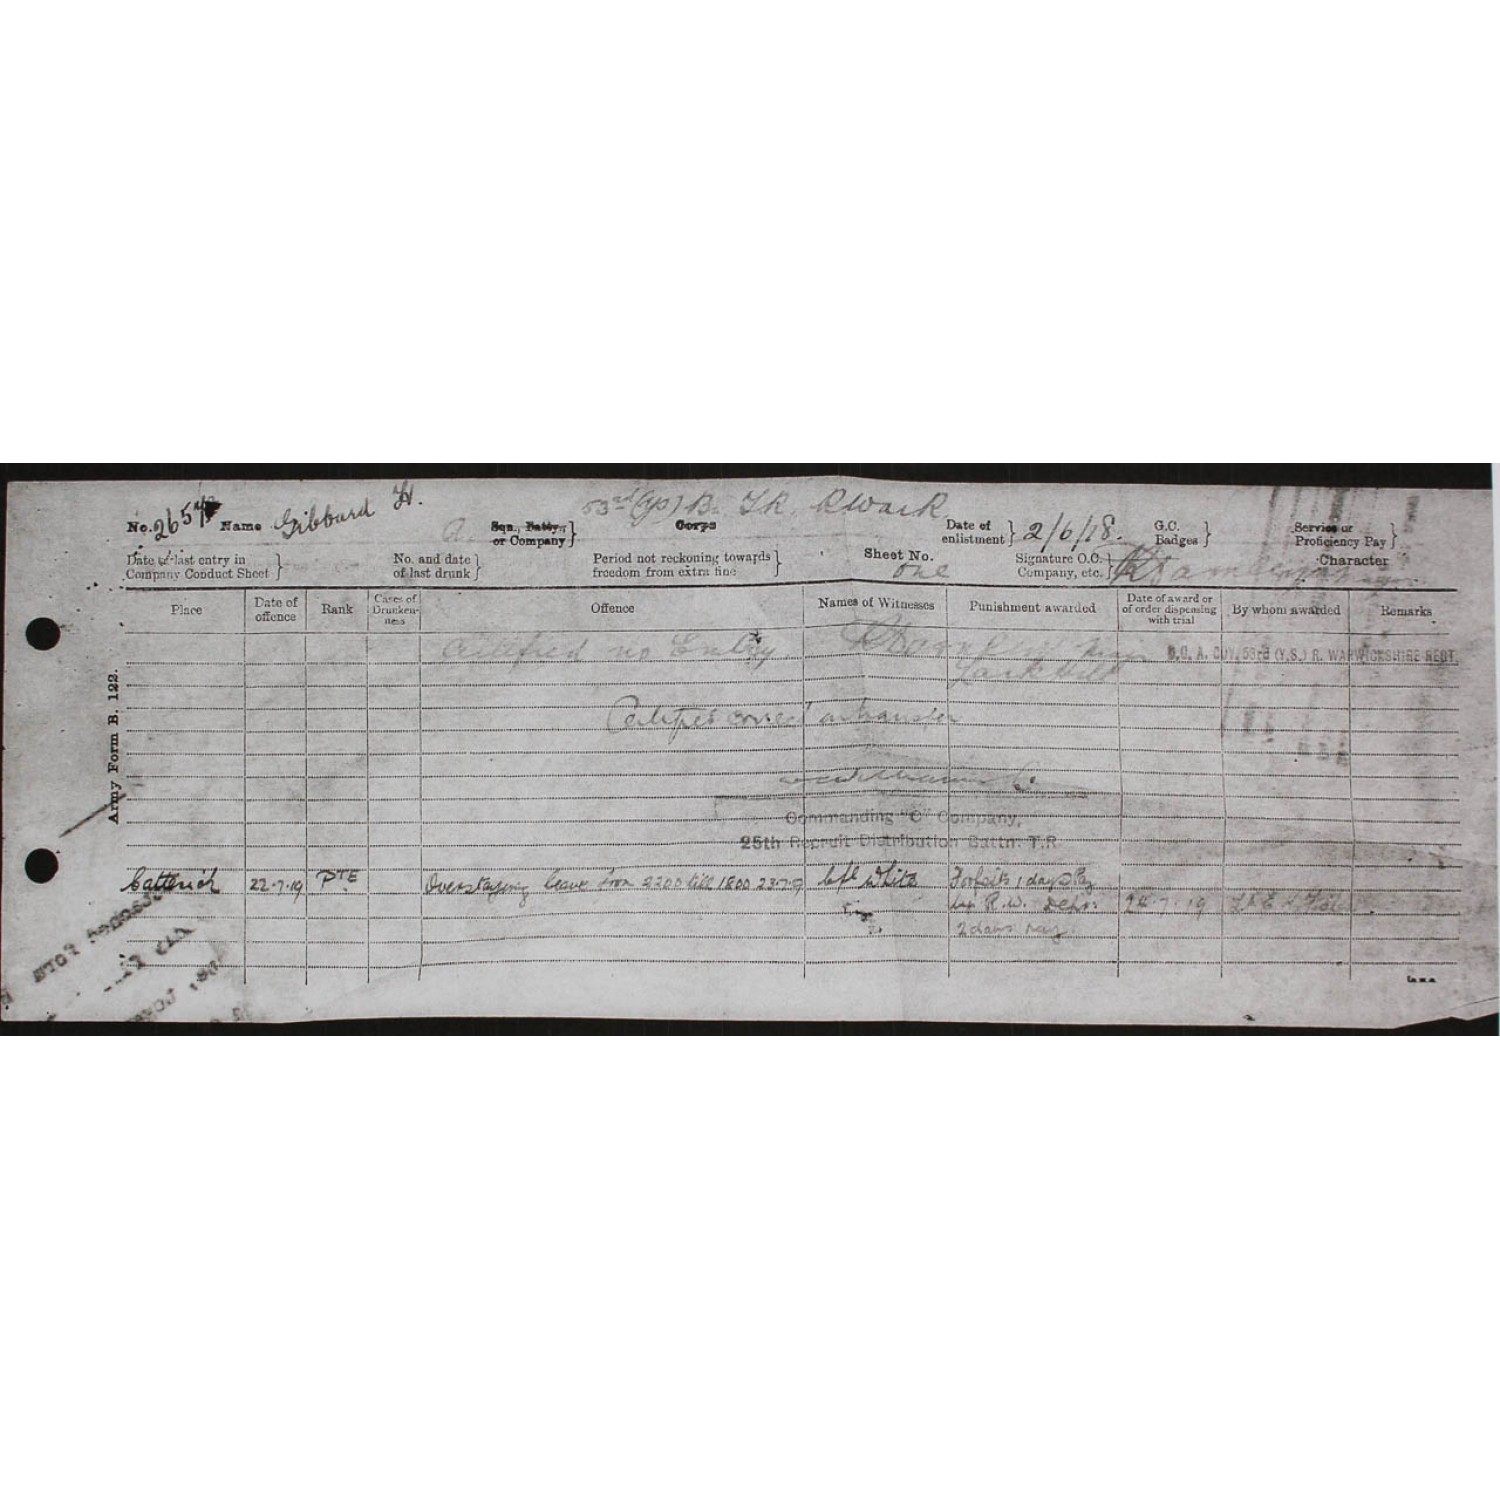 53rd (YS) Bn. T.R. R War R
No. 265 Name Gibbard H. A. Sqn., Batty., Corps Date of } 2/6/18. G.C. } Service or }
or Company } enlistment } Badges } Proficiency Pay }
Date of last entry in } No. and date } Period not reckoning towards } Sheet No. Signature O.C. } Character
Company Conduct Sheet } of last drunk } freedom from extra fine } one Company, etc. }
Place Date of offence Rank Cases of Drunkenness Offence Names of Witnesses Punishment awarded Date of award or of order dispensing with trial By whom awarded Remarks
Certified no Entry. O.C. A. COY. 53rd (Y.S.) R. WARWICKSHIRE REGT.
Larkhill
Certified correct on transfer
Commanding "C" Company,
25th Recruit Distribution Battn. T.R.
Catterick 22-7-19 PTE Overstaying leave from 2200 till 1800 23-7-19 White Forfeits 1 days Pay
R.W. 24-7-19
2 days pay
Army Form B. 122.